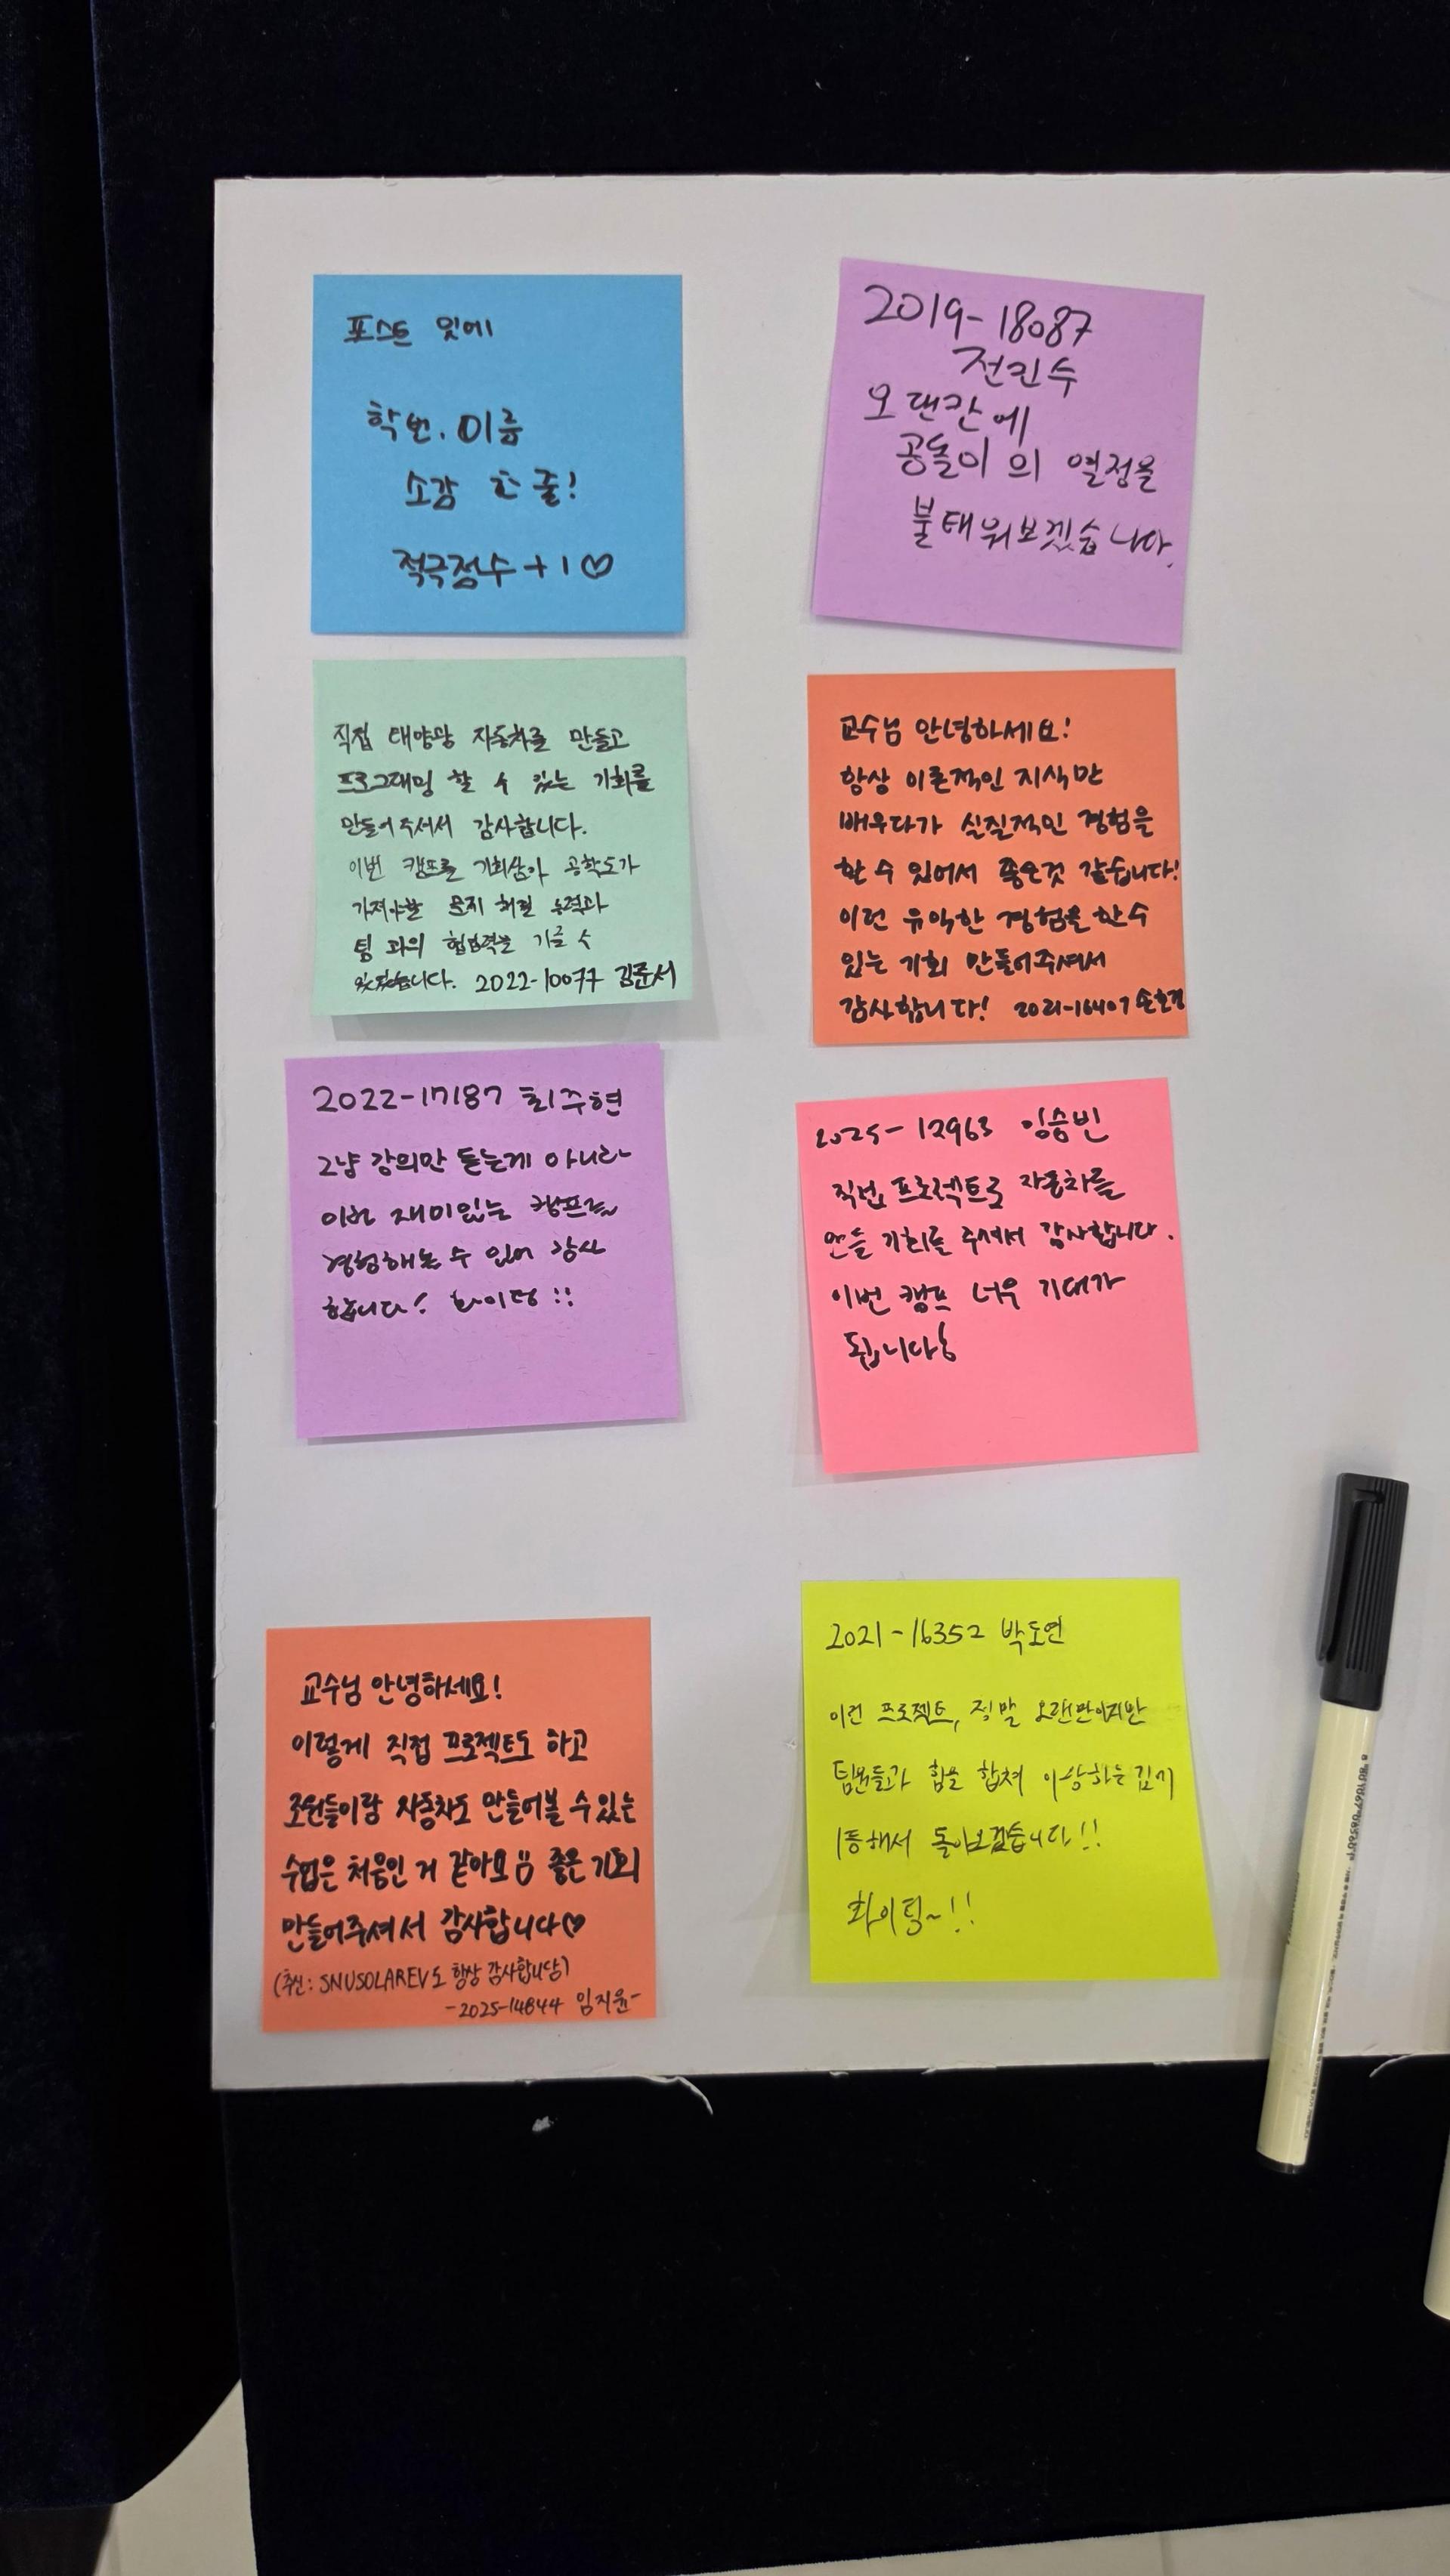 포스트 잇에
학번, 이름
소감 한 줄!
적극점수 +1♡
2019-18087
전진수
오랜만에
공돌이의 열정을
불태워보겠습니다.
직접 태양광 자동차를 만들고
프로그래밍 할 수 있는 기회를
만들어주셔서 감사합니다.
이번 캠프를 기회삼아 공학도가
가져야할 문제 해결 능력과
팀 과의 협력을 기를 수
2022-10077 김준서
교수님 안녕하세요!
항상 이론적인 지식만
배우다가 실질적인 경험을
할 수 있어서 좋은것 같습니다!
이런 유익한 경험을 할 수
있는 기회 만들어주셔서
감사합니다! 2021-16407
2022-17187 최주현
그냥 강의만 듣는게 아니라
이번 재미있는 캠프를
경험해볼 수 있어 감사
합니다! 화이팅!!
2025-12963 임승빈
직접 프로젝트로 자동차를
만들 기회를 주셔서 감사합니다.
이번 캠프 너무 기대가
됩니다!
교수님 안녕하세요!
이렇게 직접 프로젝트도 하고
조원들이랑 자동차도 만들어볼 수 있는
수업은 처음인 거 같아요 좋은 기회
만들어주셔서 감사합니다♡
(추신: SNUSOLAREV도 항상 감사합니당)
-2025-14844 임지윤-
2021-16352 박도연
이런 프로젝트, 정말 오랜만이지만
팀원들과 힘을 합쳐 이상하는
1등해서 돌아오겠습니다!!
화이팅~!!